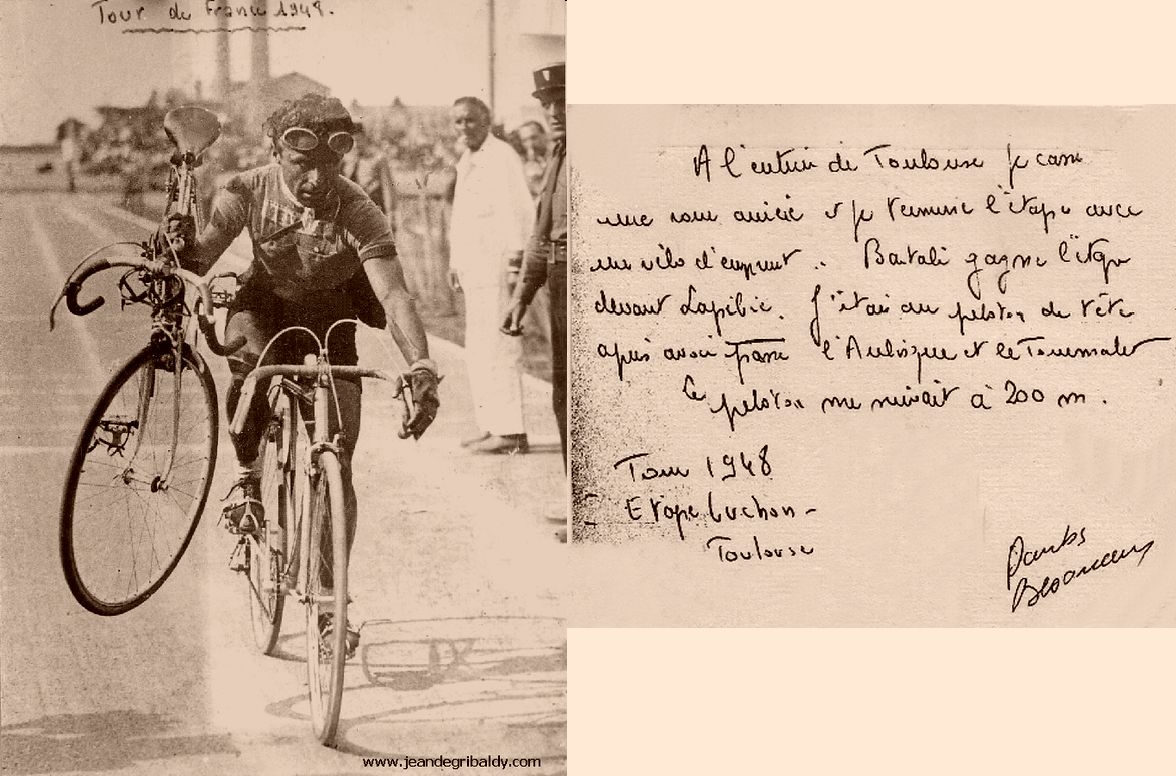 Tour de France 1948.
A l'entrée de Toulouse je casse
une roue arrière et je termine l'étape avec
un vélo d'emprunt.. Bartali gagne l'étape
devant Lapébie. J'étais au peloton de tête
après avoir passé l'Aubisque et le Tourmalet
Le peloton me suivait à 200 m.
Tour 1948
Etape Luchon-
Toulouse
www.jeandegribaldy.com